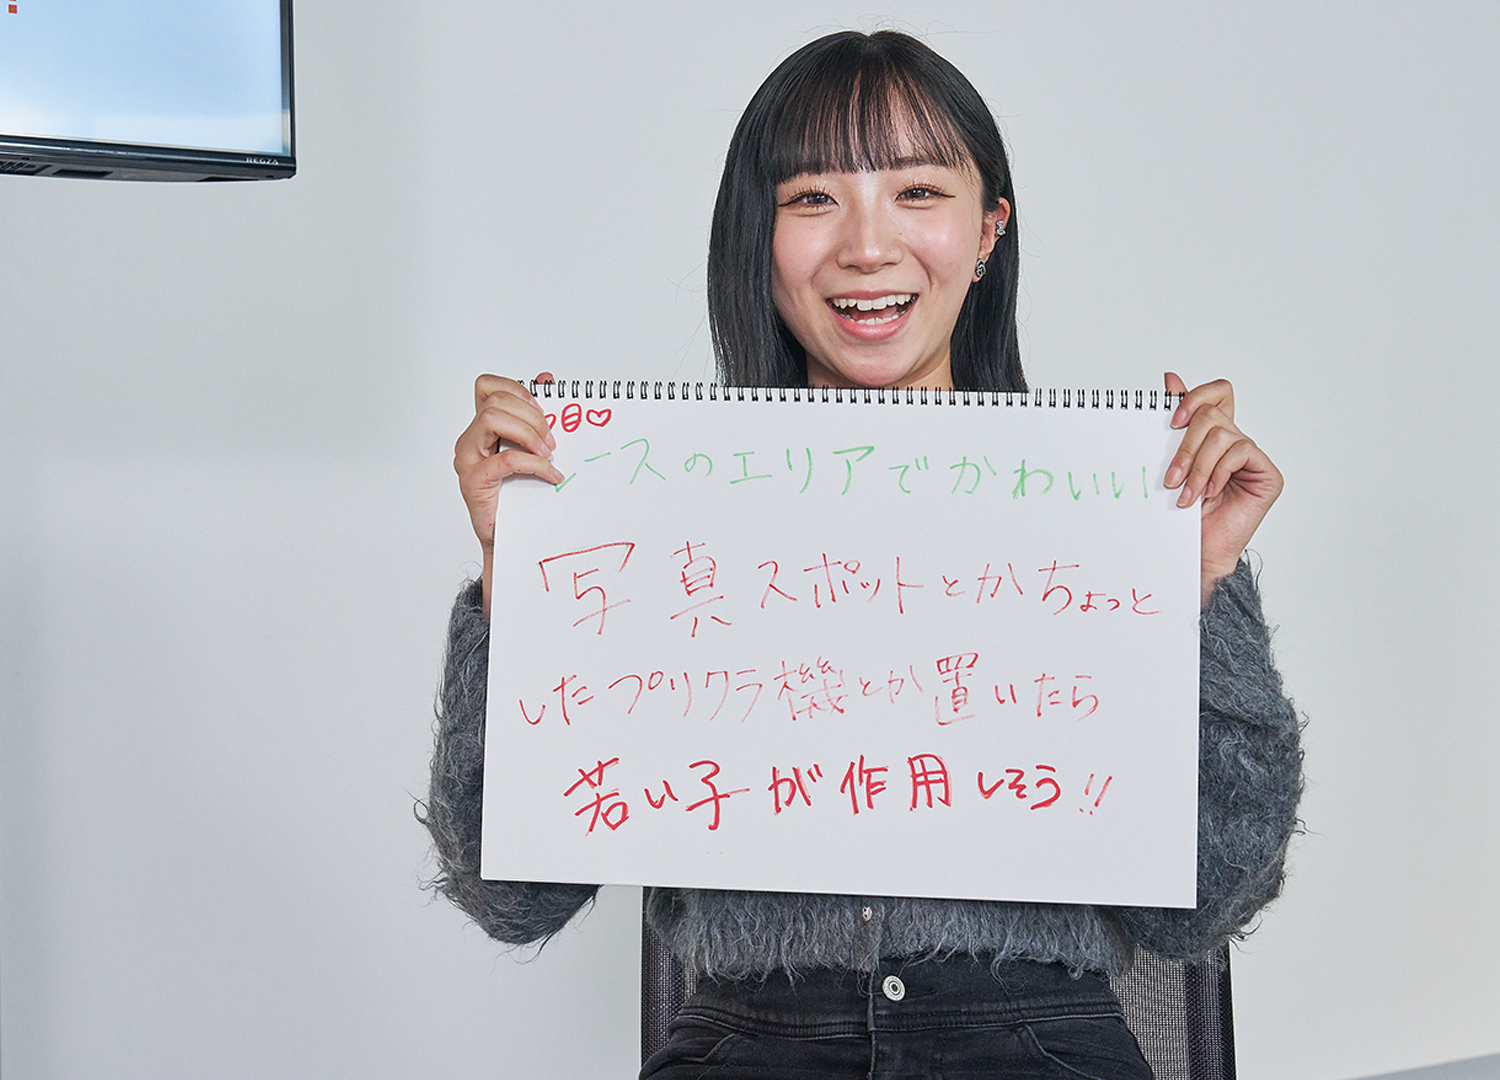 REGZA
目♡
レースのエリアでかわいい
写真スポットとかちょっと
したプリクラ機とか置いたら
若い子が作用しそう!!